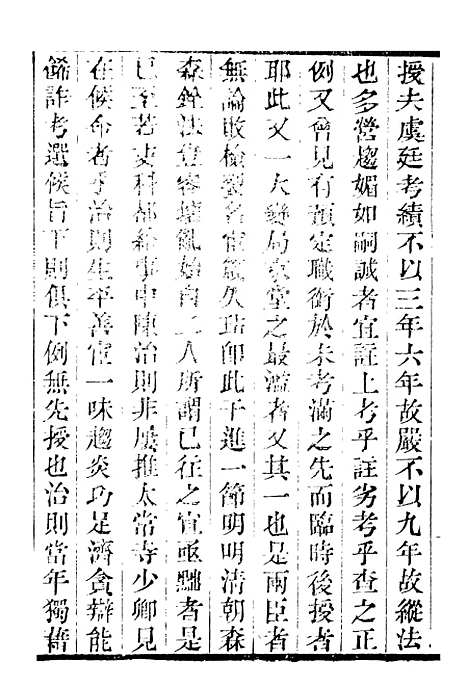 授夫虞廷考績不以三年六年故嚴不以九年故縱法
也多營趨媚如嗣誠者宜註上考乎註劣考乎查之正
例又曾見有預定職銜於未考滿之先而臨時後授者
耶此又一大變局黃堂之最濫者又其一也是兩臣者
無論敗檢名官箴久玷卽此于進一節明明清朝森
森銓法豈容壞亂始自二人所謂已往之宜亟黜者是
已至若吏科都給事中陳治則非屢推太常寺少卿見
在候命者乎治則生平善宦一味趨炎巧足濟貪辯能
飾詐考選候旨下則俱下例無先授也治則當年獨藉